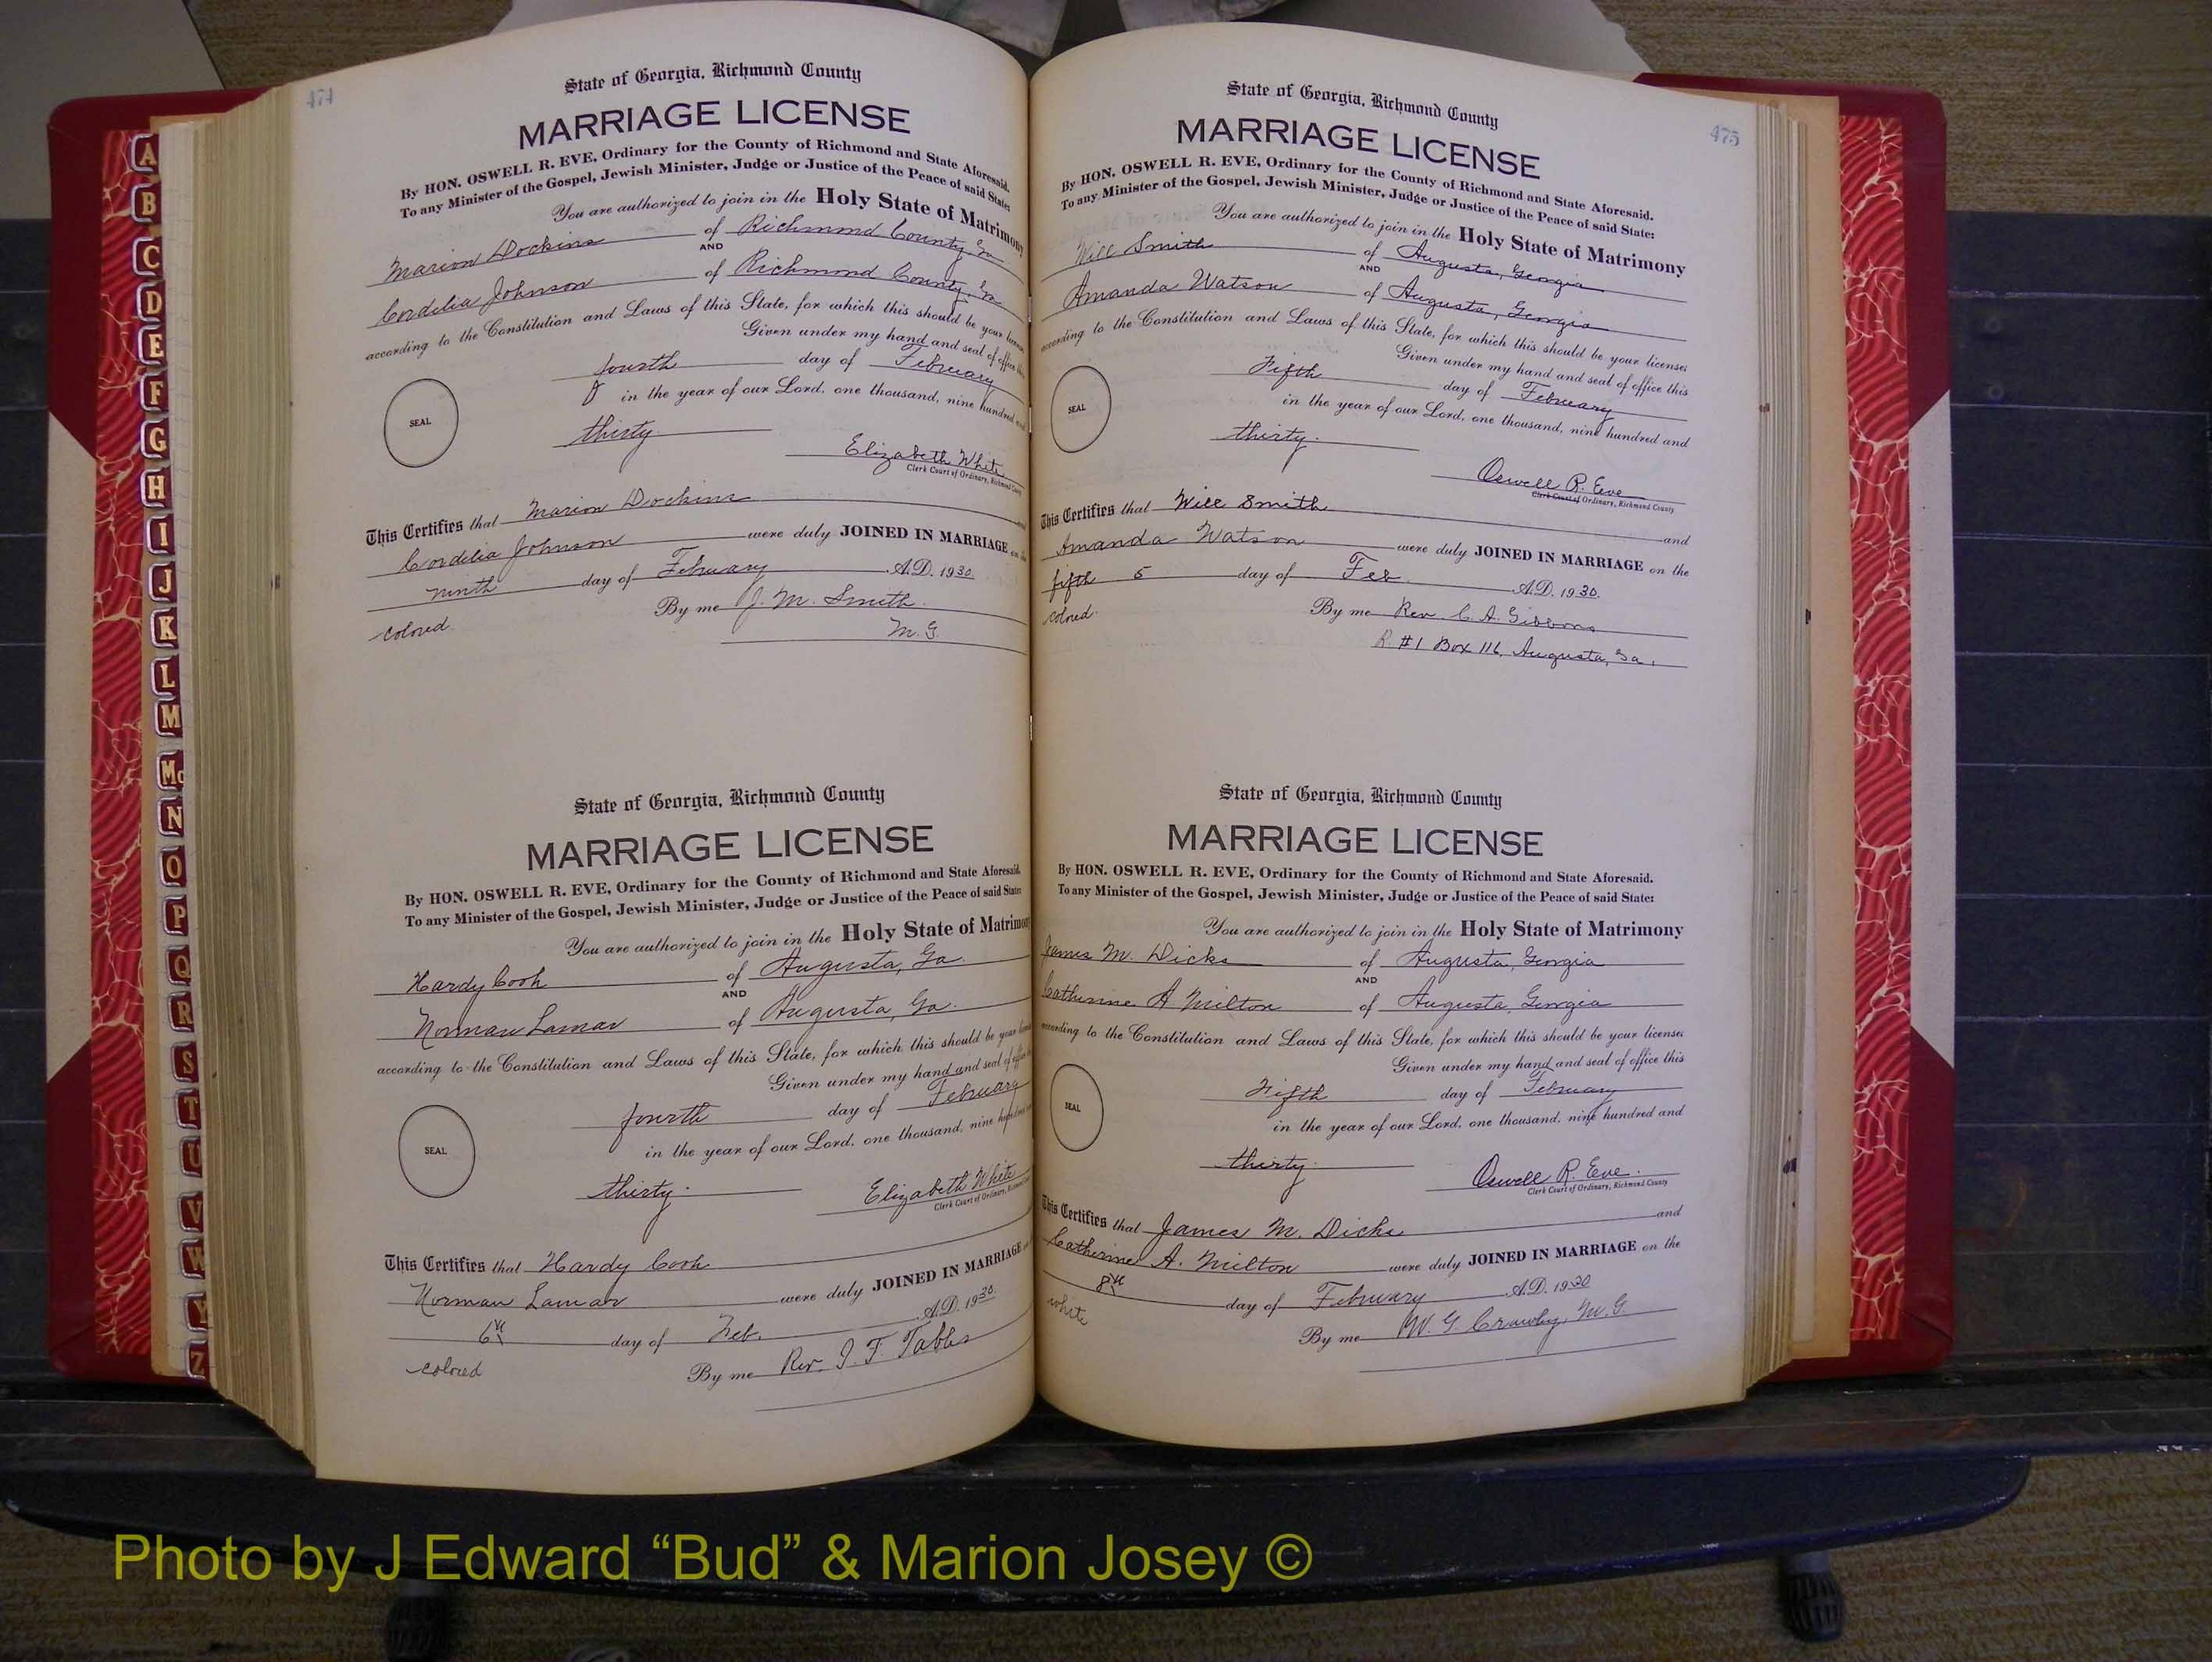 474
State of Georgia, Richmond County
MARRIAGE LICENSE
By HON. OSWELL R. EVE, Ordinary for the County of Richmond and State Aforesaid.
To any Minister of the Gospel, Jewish Minister, Judge or Justice of the Peace of said State:
You are authorized to join in the Holy State of Matrimony
Marion Dockins of Richmond County, Ga
AND
Cordelia Johnson of Richmond County, Ga
according to the Constitution and Laws of this State, for which this should be your license
Given under my hand and seal of office this
fourth day of February
in the year of our Lord, one thousand, nine hundred and
SEAL
thirty
Elizabeth White
Clerk Court of Ordinary, Richmond County
This Certifies that Marion Dockins and
Cordelia Johnson were duly JOINED IN MARRIAGE on the
ninth day of February A.D. 1930.
colored By me J. M. Smith.
M. G.
State of Georgia, Richmond County
MARRIAGE LICENSE
By HON. OSWELL R. EVE, Ordinary for the County of Richmond and State Aforesaid.
To any Minister of the Gospel, Jewish Minister, Judge or Justice of the Peace of said State:
You are authorized to join in the Holy State of Matrimony
Hardy Cook of Augusta, Ga.
AND
Norman Lamar of Augusta, Ga.
according to the Constitution and Laws of this State, for which this should be your license
Given under my hand and seal of office
fourth day of February
in the year of our Lord, one thousand, nine hundred
SEAL
thirty.
Elizabeth White
Clerk Court of Ordinary, Richmond
This Certifies that Hardy Cook
Norman Lamar were duly JOINED IN MARRIAGE
6th day of Feb. A.D. 1930.
colored By me Rev. J. F. Tables
475
State of Georgia, Richmond County
MARRIAGE LICENSE
By HON. OSWELL R. EVE, Ordinary for the County of Richmond and State Aforesaid.
To any Minister of the Gospel, Jewish Minister, Judge or Justice of the Peace of said State:
You are authorized to join in the Holy State of Matrimony
Will Smith of Augusta, Georgia
AND
Amanda Watson of Augusta, Georgia
according to the Constitution and Laws of this State, for which this should be your license:
Given under my hand and seal of office this
Fifth day of February
in the year of our Lord, one thousand, nine hundred and
SEAL
thirty.
Oswell R. Eve
Clerk Court of Ordinary, Richmond County
This Certifies that Will Smith and
Amanda Watson were duly JOINED IN MARRIAGE on the
fifth 5 day of Feb A.D. 1930.
colored. By me Rev. C. A. Gibbons
R. #1 Box 116, Augusta, Ga.
State of Georgia, Richmond County
MARRIAGE LICENSE
By HON. OSWELL R. EVE, Ordinary for the County of Richmond and State Aforesaid.
To any Minister of the Gospel, Jewish Minister, Judge or Justice of the Peace of said State:
You are authorized to join in the Holy State of Matrimony
James M. Dicks of Augusta, Georgia
AND
Catherine A Milton of Augusta, Georgia
according to the Constitution and Laws of this State, for which this should be your license:
Given under my hand and seal of office this
Fifth day of February
in the year of our Lord, one thousand, nine hundred and
SEAL
thirty.
Oswell R. Eve.
Clerk Court of Ordinary, Richmond County
This Certifies that James M. Dicks and
Catherine A. Milton were duly JOINED IN MARRIAGE on the
8th day of February A.D. 1930
white By me W. G. Crawley, M. G.
A
B
C
D
E
F
G
H
I
J
K
L
M
Mc
N
O
P
Q
R
S
T
U
V
W
Y
Z
Photo by J Edward “Bud” & Marion Josey ©